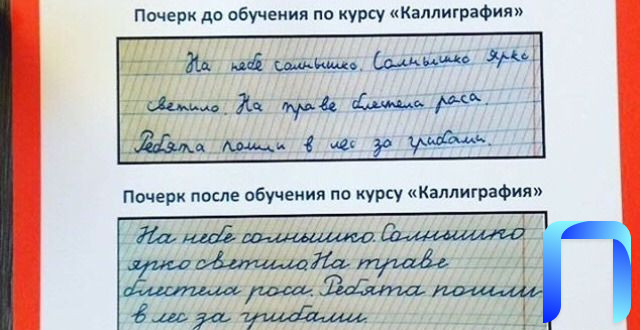 Почерк до обучения по курсу «Каллиграфия»
На небе солнышко. Солнышко ярко
светило. На траве блестела роса.
Ребята пошли в лес за грибами.
Почерк после обучения по курсу «Каллиграфия»
На небе солнышко. Солнышко
ярко светило. На траве
блестела роса. Ребята пошли
в лес за грибами.